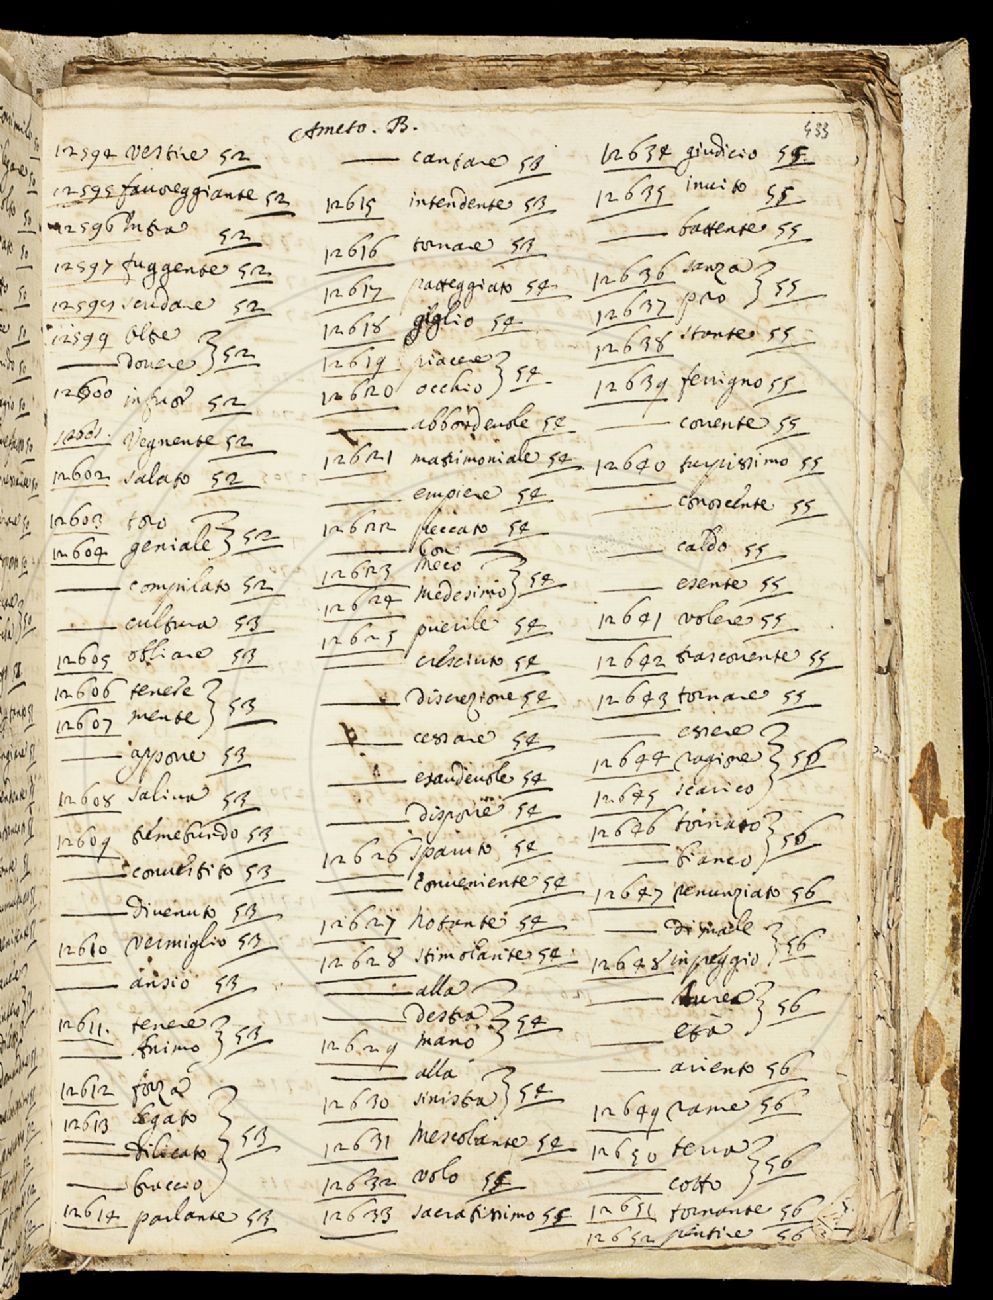 Ameto. B.
433
12594 vestire 52
12595 favoreggiante 52
12596 Intra 52
12597 fuggente 52
12598 scendere 52
12599 oltre
—— dovere } 52
12600 infuor 52
12601. Vegnente 52
12602 salato 52
12603 toro
12604 geniale } 52
—— compilato 52
—— cultura 53
12605 obliare 53
12606 tenere
12607 mente } 53
—— apporre 53
12608 saliva 53
12609 tremebundo 53
—— convertito 53
—— divenuto 53
12610 vermiglio 53
—— ansio 53
12611. tenere
—— Animo } 53
12612 forza
12613 legato
—— dilicato } 53
—— braccio
12614 parlante 53
—— cantare 53
12615 intendente 53
12616 tornare 53
12617 patteggiato 54
12618 giglio 54
12619 piacere
12620 occhio } 54
—— abbordevole 54
12621 matrimoniale 54
—— empiere 54
12622 peccato 54
—— Con
12623 meco
12624 medesimo } 54
12625 puerile 54
—— cresciuto 54
—— discrezione 54
—— cessare 54
—— esaudevole 54
—— disporre 54
12626 sparuto 54
—— conveniente 54
12627 Notante 54
12628 stimolante 54
—— alla
—— destra
12629 mano } 54
—— alla
12630 sinistra } 54
12631 Mescolante 54
12632 volo 55
12633 sacratissimo 55
12634 giudicio 55
12635 invito 55
—— battente 55
12636 sanza
12637 pro } 55
12638 stante 55
12639 ferrigno 55
—— corrente 55
12640 turpissimo 55
—— conoscente 55
—— caldo 55
—— esente 55
12641 volere 55
12642 trascorrente 55
12643 tornare 55
—— essere
12644 ragione } 56
12645 scarico
12646 tornato
—— bianco } 56
12647 renunziato 56
—— di male
12648 in peggio } 56
—— Aurea
—— età } 56
—— ariento 56
12649 rame 56
12650 terra
—— cotto } 56
12651 tornante 56
12652 pentire 56